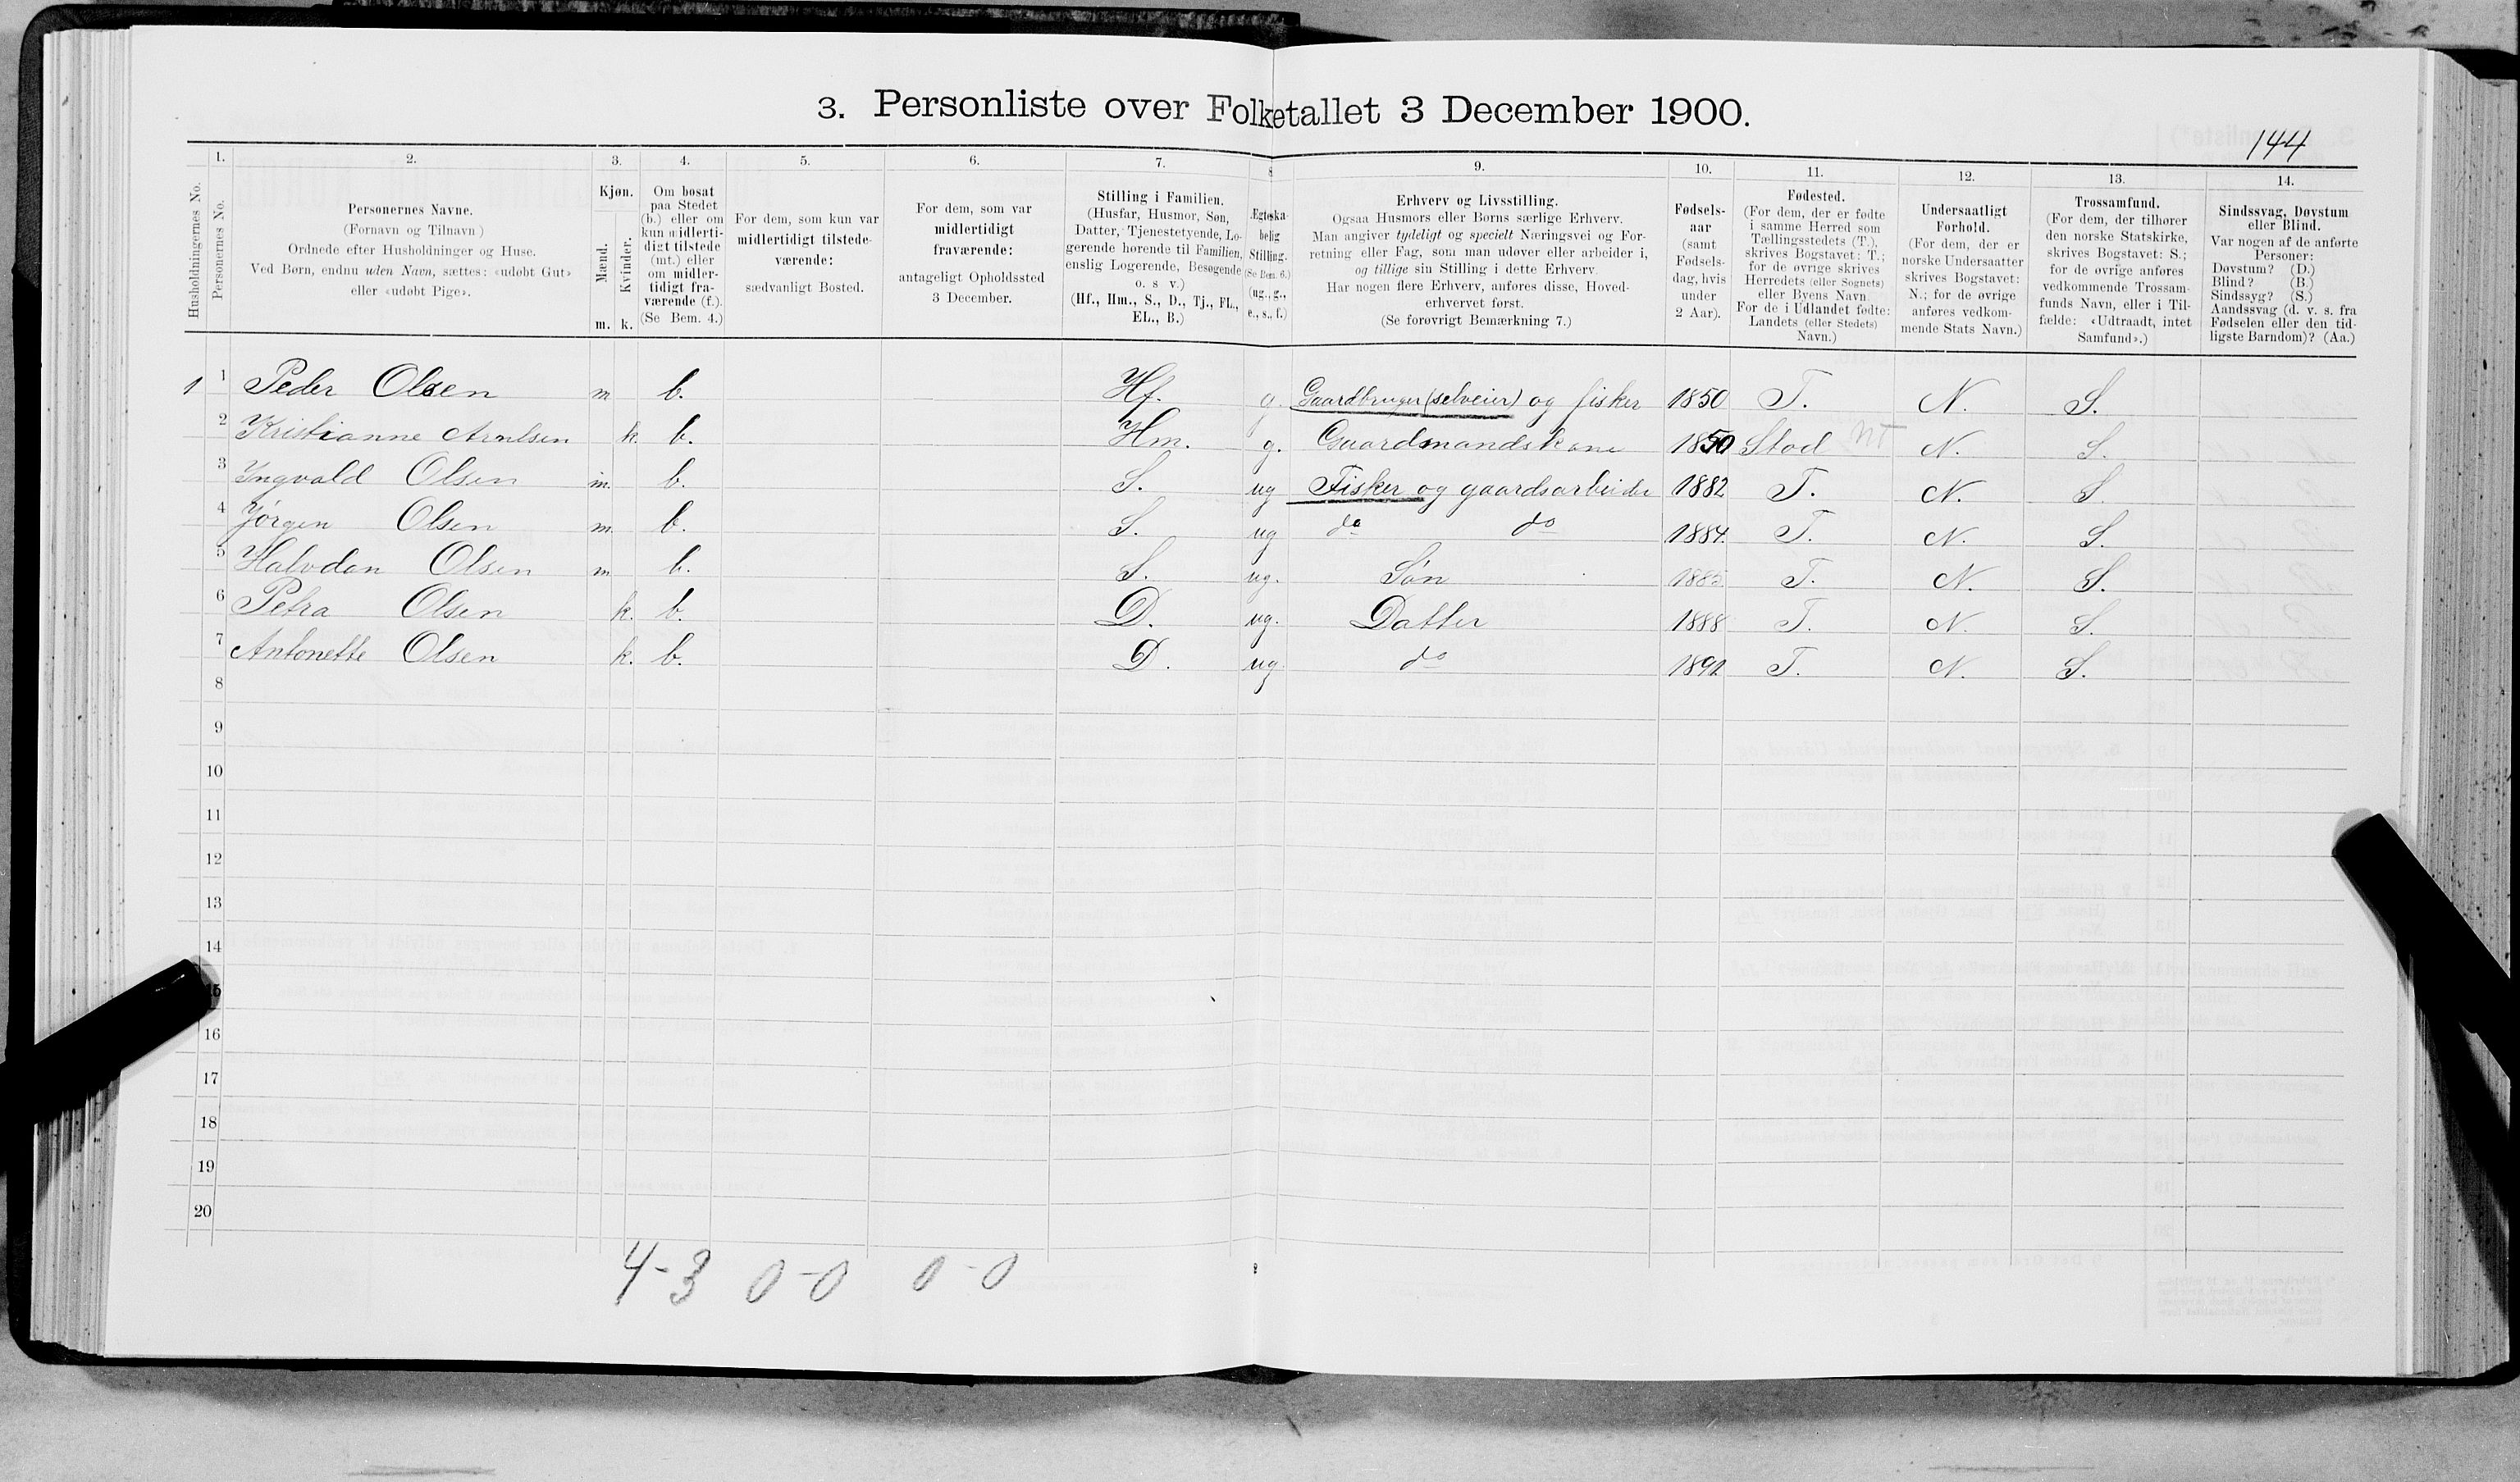 3. Personliste over Folketallet 3 December 1900.
144
Husholdningernes No.
1.
Personernes No.
2.
Personernes Navne.
(Fornavn og Tilnavn)
Ordnede efter Husholdninger og Huse.
Ved Børn, endnu uden Navn, sættes: «udøbt Gut»
eller «udøbt Pige».
3.
Kjøn.
Mænd.
Kvinder.
m. k.
4.
Om bosat
paa Stedet
(b.) eller om
kun midlerti-
digt tilstede
(mt.) eller
om midler-
tidigt fra-
værende (f.).
(Se Bem. 4.)
5.
For dem, som kun var
midlertidigt tilstede-
værende:
sædvanligt Bosted.
6.
For dem, som var
midlertidigt
fraværende:
antageligt Opholdssted
3 December.
7.
Stilling i Familien.
(Husfar, Husmor, Søn,
Datter, Tjenestetyende, Lo-
gerende hørende til Familien,
enslig Logerende, Besøgende
o. s v.)
(Hf., Hm., S., D., Tj., FL.,
EL., B.)
8
Ægteska-
belig
Stilling.
(Se Bem. 6.)
(ug., g.,
e., s., f.)
9.
Erhverv og Livsstilling.
Ogsaa Husmors eller Børns særlige Erhverv.
Man angiver tydeligt og specielt Næringsvei og For-
retning eller Fag, som man udøver eller arbeider i,
og tillige sin Stilling i dette Erhverv.
Har nogen flere Erhverv, anføres disse, Hoved-
erhvervet først.
(Se forøvrigt Bemærkning 7.)
10.
Fødsels-
aar
(samt
Fødsels-
dag, hvis
under
2 Aar).
11.
Fødested.
(For dem, der er fødte
i samme Herred som
Tællingsstedets (T.),
skrives Bogstavet: T.;
for de øvrige skrives
Herredets (eller Sognets)
eller Byens Navn.
For de i Udlandet fødte:
Landets (eller Stedets)
Navn.)
12.
Undersaatligt
Forhold.
(For dem, der er
norske Undersaatter
skrives Bogstavet:
N.; for de øvrige
anføres vedkom-
mende Stats Navn.)
13.
Trossamfund.
(For dem, der tilhører
den norske Statskirke,
skrives Bogstavet: S.;
for de øvrige anføres
vedkommende Trossam-
funds Navn, eller i Til-
fælde: «Udtraadt, intet
Samfund».)
14.
Sindssvag, Døvstum
eller Blind.
Var nogen af de anførte
Personer:
Døvstum? (D.)
Blind? (B.)
Sindssyg? (S.)
Aandssvag (d. v. s. fra
Fødselen eller den tid-
ligste Barndom)? (Aa.)
1 1 Peder Olsen m b. Hf. g. Gaardbruger (selveier) og fisker 1850 T. N. S.
2 Kristianne Arntsen k. b. Hm. g. Gaardmandskone 1850 Stod NT N. S.
3 Ingvald Olsen m. b. S. ug Fisker og gaardsarbeider 1882 T. N. S.
4 Jørgen Olsen m. b. S. ug do do 1884. T. N. S.
5 Halvdan Olsen m b. S. ug. Søn 1885 T. N. S.
6 Petra Olsen k. b. D. ug. Datter 1888 T. N. S.
7 Antonette Olsen k. b. D. ug. do T. N. S.
8
9
10
11
12
13
14
15
16
17
18
19
20
4-3 0-0 0-0